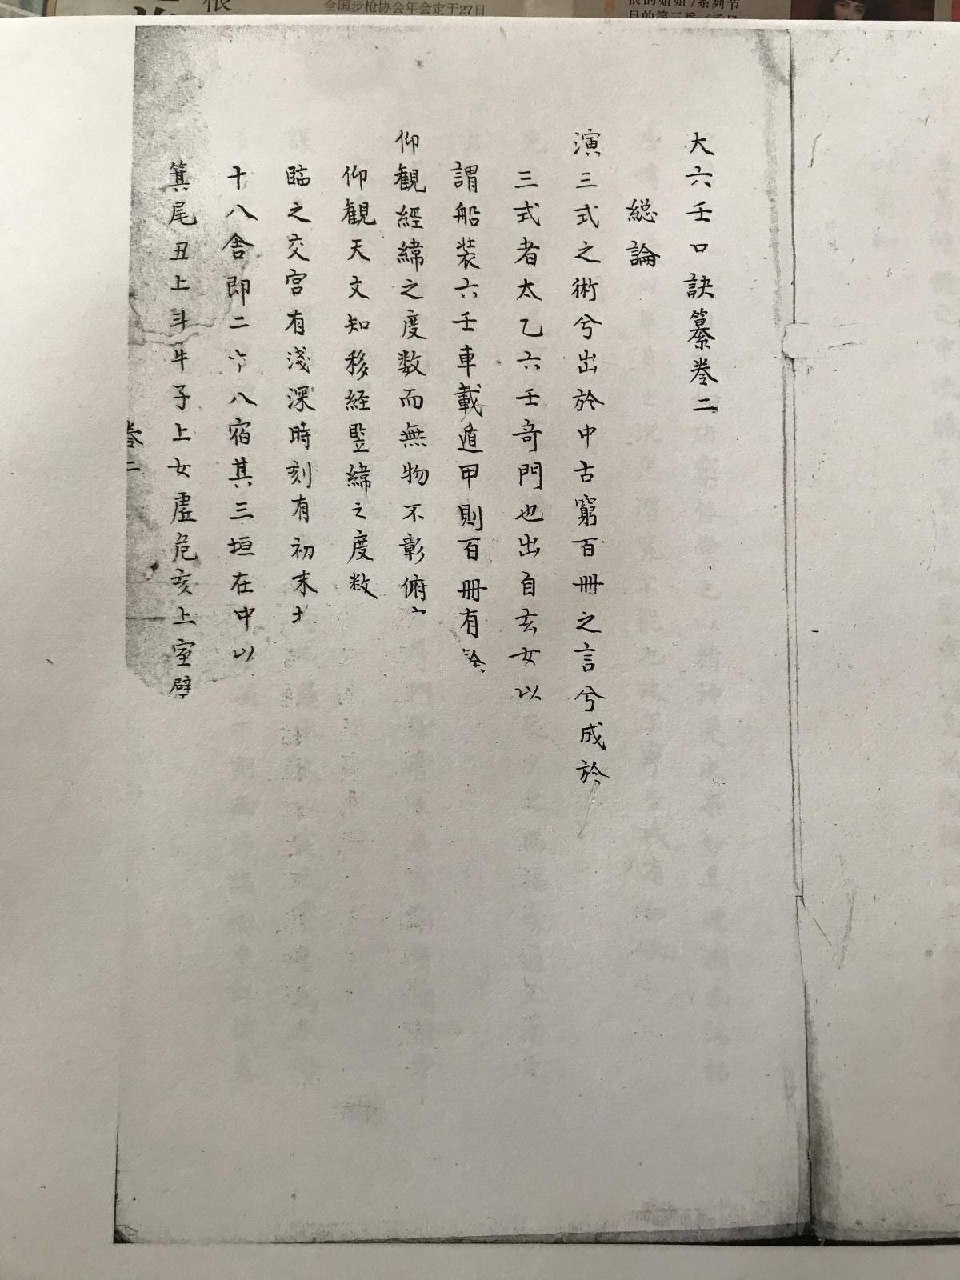 全国步枪协会年会定于27日
大六壬口訣纂卷二
総論
演三式之術兮出於中古窮百冊之言兮成於
三式者太乙六壬奇門也出自玄女以
謂船装六壬車載遁甲則百冊有
仰観經緯之度数而無物不彰俯
仰観天文知移経暨緯之度数
臨之交宮有淺深時刻有初末
十八舍即二十八宿其三垣在中以
箕尾丑上斗牛子上女虛危亥上室壁
卷二